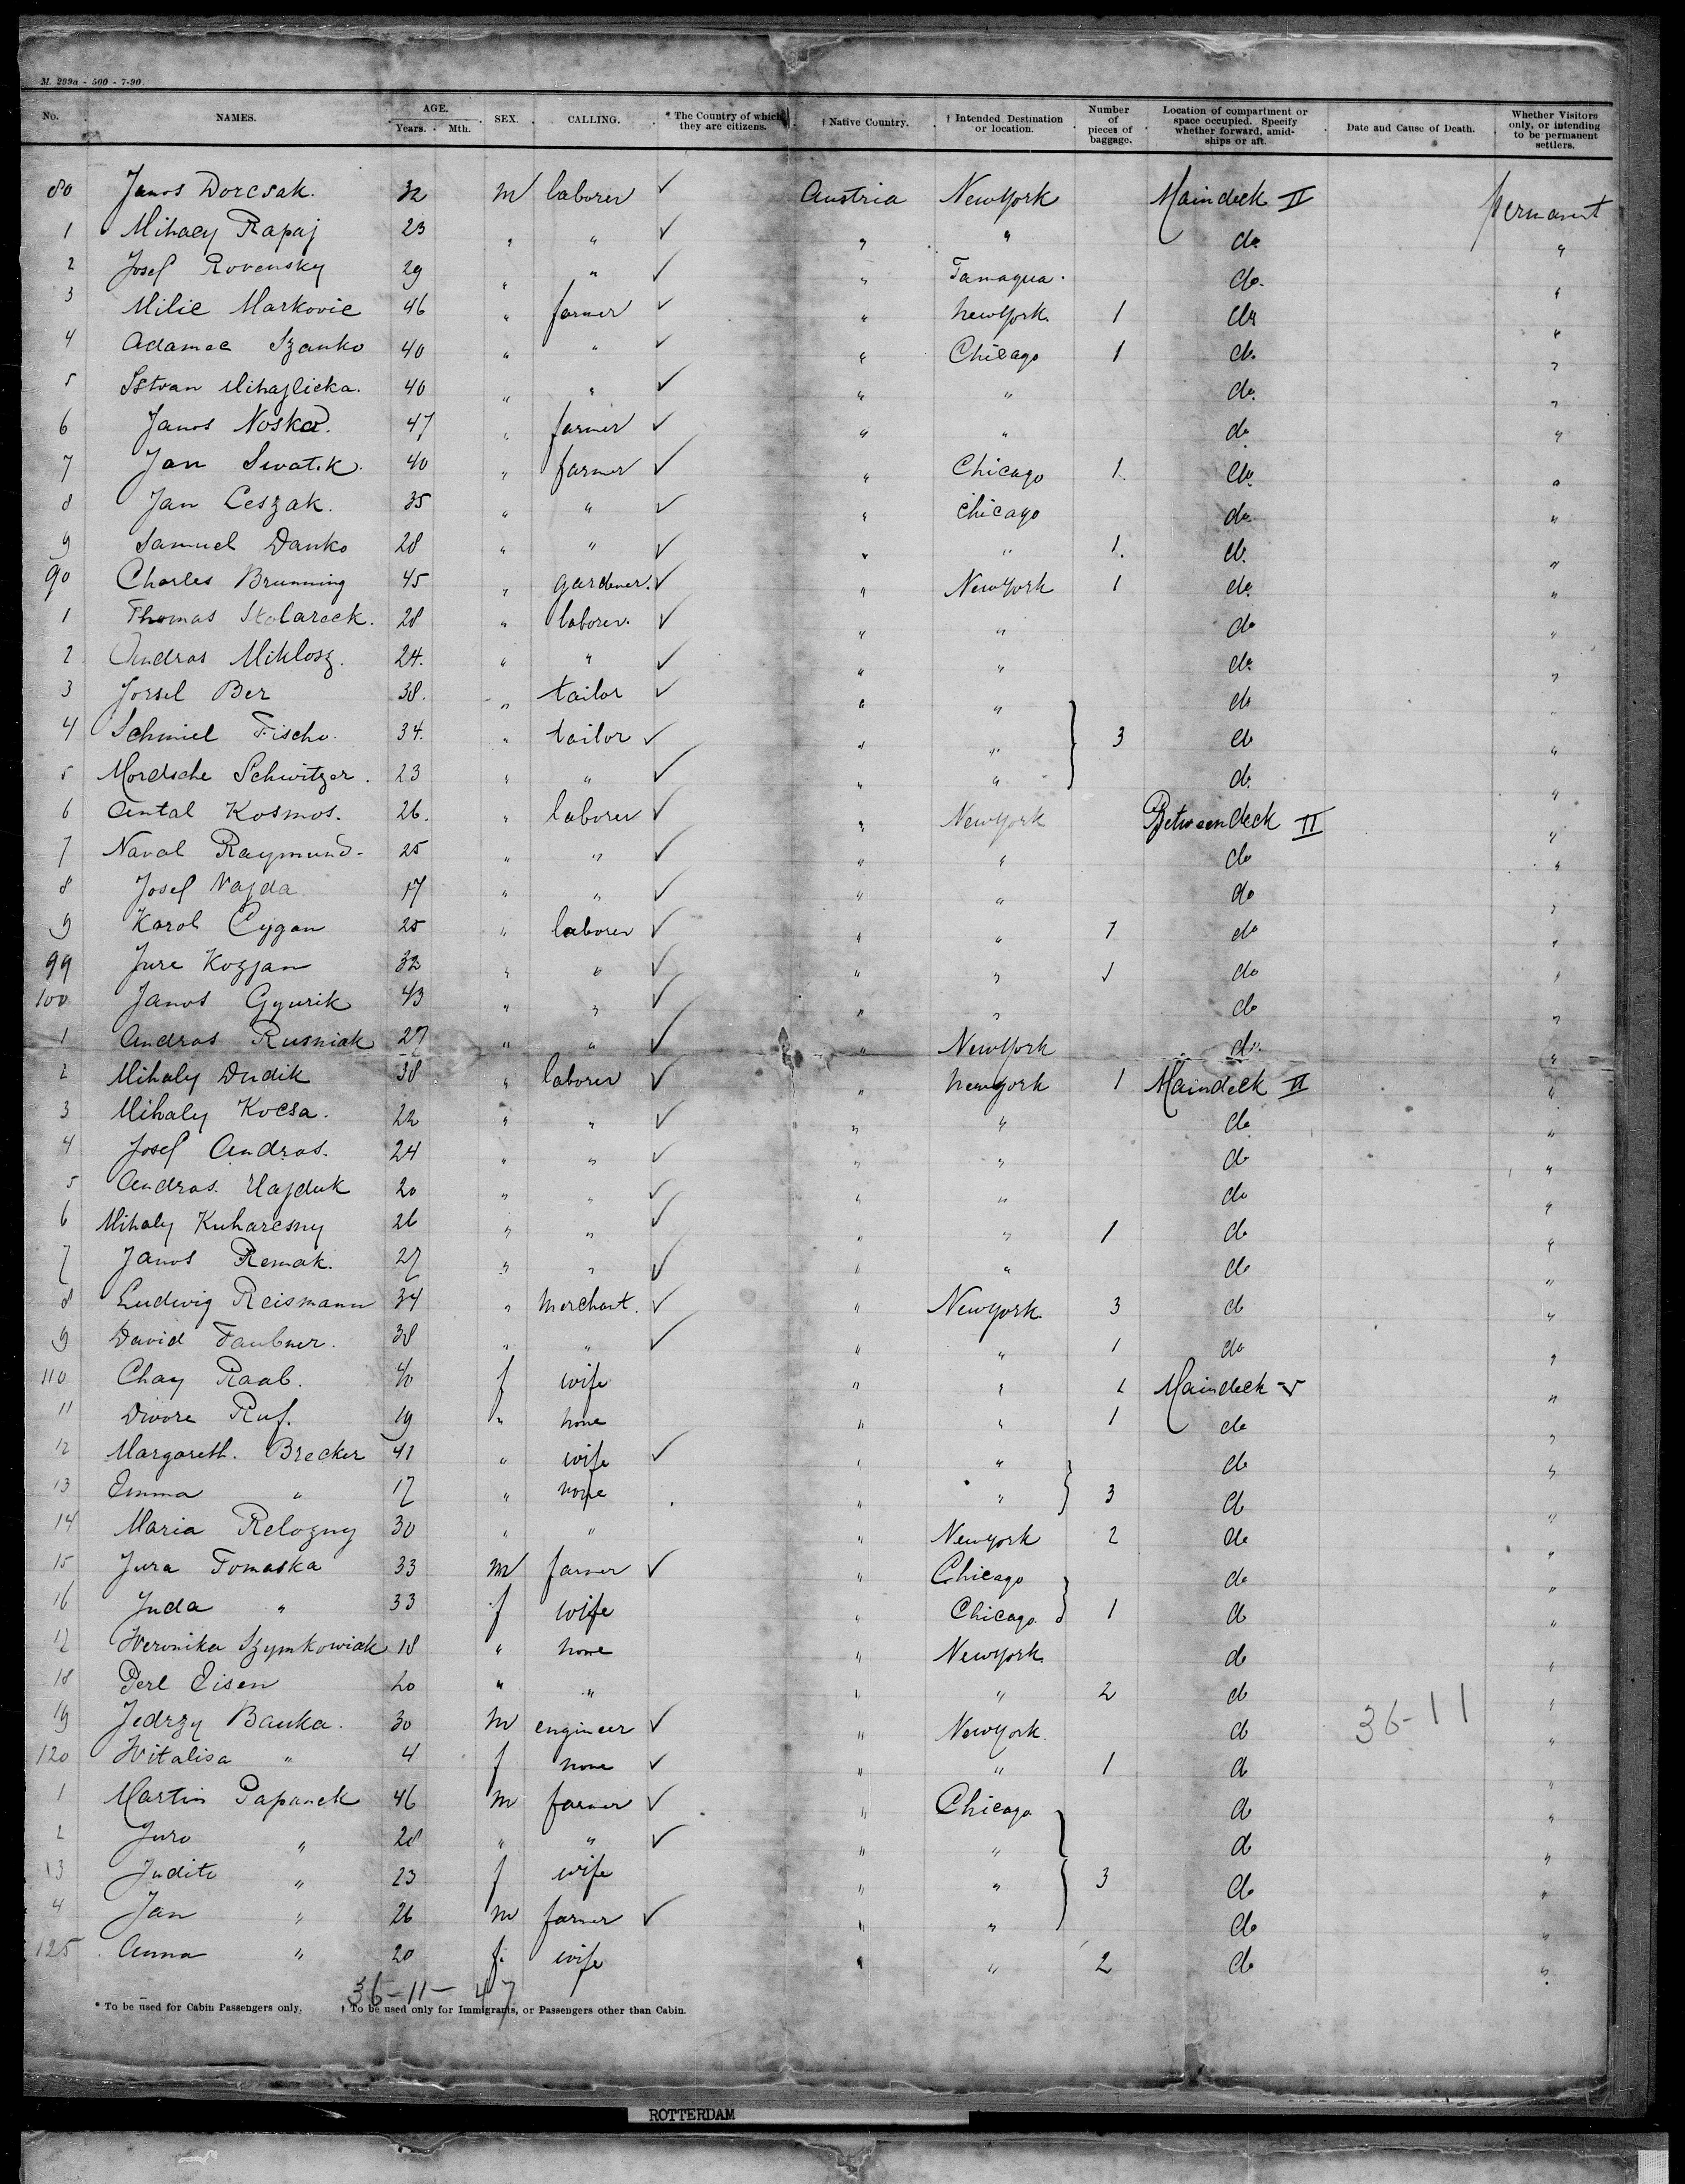 M. 299a - 500 - 7-90
No. NAMES. AGE. Years. Mth. SEX. CALLING. * The Country of which they are citizens. † Native Country. † Intended Destination or location. Number of pieces of baggage. Location of compartment or space occupied. Specify whether forward, amidships or aft. Date and Cause of Death. Whether Visitors only, or intending to be permanent settlers.
80 Janos Dorcsak. 32 m laborer ✓ Austria New York Maindeck II permanent
1 Mihaly Rapaj 23 " " ✓ " " do "
2 Josef Rovensky 29 " " ✓ " Tamaqua. do. "
3 Milic Markovic 46 " farmer ✓ " New York. 1 do "
4 Adamec Szanko 40 " " ✓ " Chicago 1 do. "
5 Istvan Mihajlicka. 40 " " ✓ " " do. "
6 Janos Noska. 47 " farmer ✓ " " do "
7 Jan Swatik. 40 " farmer ✓ " Chicago 1. do. "
8 Jan Leszak. 35 " " ✓ " Chicago do. "
9 Samuel Danko 28 " " ✓ " " 1. do. "
90 Charles Brunning 45 " gardener. ✓ " New York 1 do. "
1 Thomas Stolareck. 28 " laborer. ✓ " " do "
2 Andras Miklosz. 24. " " ✓ " " do. "
3 Jossel Ber 38. " tailor ✓ " " do "
4 Schmiel Fischo. 34. " tailor ✓ " " 3 do "
5 Mordsche Schwitzer. 23 " " ✓ " " do. "
6 Antal Kosmos. 26. " laborer ✓ " New York Betweendeck II "
7 Naval Raymund. 25 " " ✓ " " do "
8 Josef Vajda 17 " " ✓ " " do "
9 Karol Cygan 25 " laborer ✓ " " 1 do "
99 Jure Kozjan 32 " " ✓ " " 1 do "
100 Janos Gyurik 43 " " ✓ " " do "
1 Andras Rusniak 27 " " ✓ " New York do. "
2 Mihaly Dudik 38 " laborer ✓ " New York 1 Maindeck II "
3 Mihaly Kocsa. 22 " " ✓ " " do "
4 Josef Andras. 24 " " ✓ " " do "
5 Andras. Hajduk 20 " " ✓ " " do "
6 Mihaly Kuharcsny 26 " " ✓ " " 1 do "
7 Janos Remak. 27 " " ✓ " " do "
8 Ludwig Reismann 34 " merchant. ✓ " New York. 3 do "
9 David Taubner. 38 " " ✓ " " 1 do "
110 Chay Raab. 40 f wife " " 1 Maindeck "
11 Dwore Ruf. 19 " none " " 1 do "
12 Margareth. Brecker 41 " wife ✓ " " do "
13 Emma " 17 " none " " 3 do "
14 Maria Relozny 30 " " " New York 2 do "
15 Jura Tomaska 33 m farmer ✓ " Chicago do "
16 Juda " 33 f wife " Chicago 1 do "
17 Weronika Szymkowiak 18 " none " New York. do "
18 Perl Eisen 20 " " " " 2 do "
19 Jedrzy Banka. 30 m engineer ✓ " New York. do 36-11 "
120 Witalisa " 4 f none ✓ " " 1 do "
1 Martin Papanek 46 m farmer ✓ " Chicago do "
2 Juro " 28 " " ✓ " " do "
13 Judite " 23 f wife " " 3 do "
4 Jan " 26 m farmer ✓ " " do "
125 Anna " 20 f. wife " " 2 do "
36-11-47
* To be used for Cabin Passengers only. † To be used only for Immigrants, or Passengers other than Cabin.
ROTTERDAM